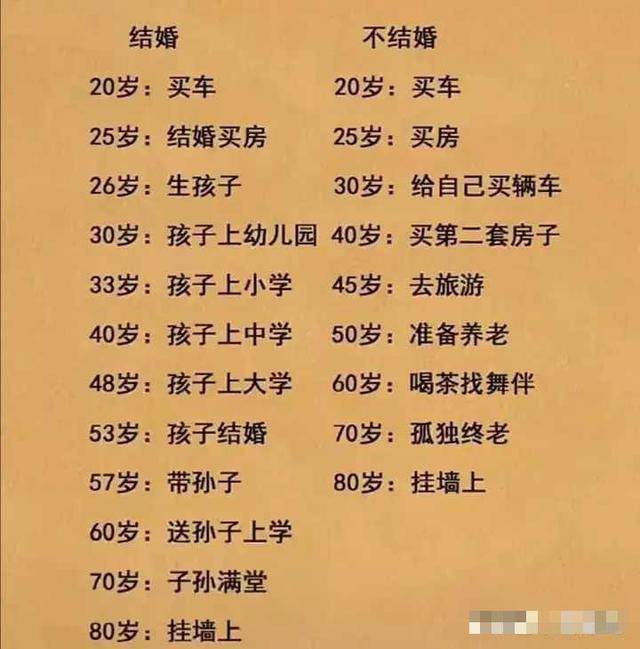 结婚 不结婚
20岁：买车 20岁：买车
25岁：结婚买房 25岁：买房
26岁：生孩子 30岁：给自己买辆车
30岁：孩子上幼儿园 40岁：买第二套房子
33岁：孩子上小学 45岁：去旅游
40岁：孩子上中学 50岁：准备养老
48岁：孩子上大学 60岁：喝茶找舞伴
53岁：孩子结婚 70岁：孤独终老
57岁：带孙子 80岁：挂墙上
60岁：送孙子上学
70岁：子孙满堂
80岁：挂墙上